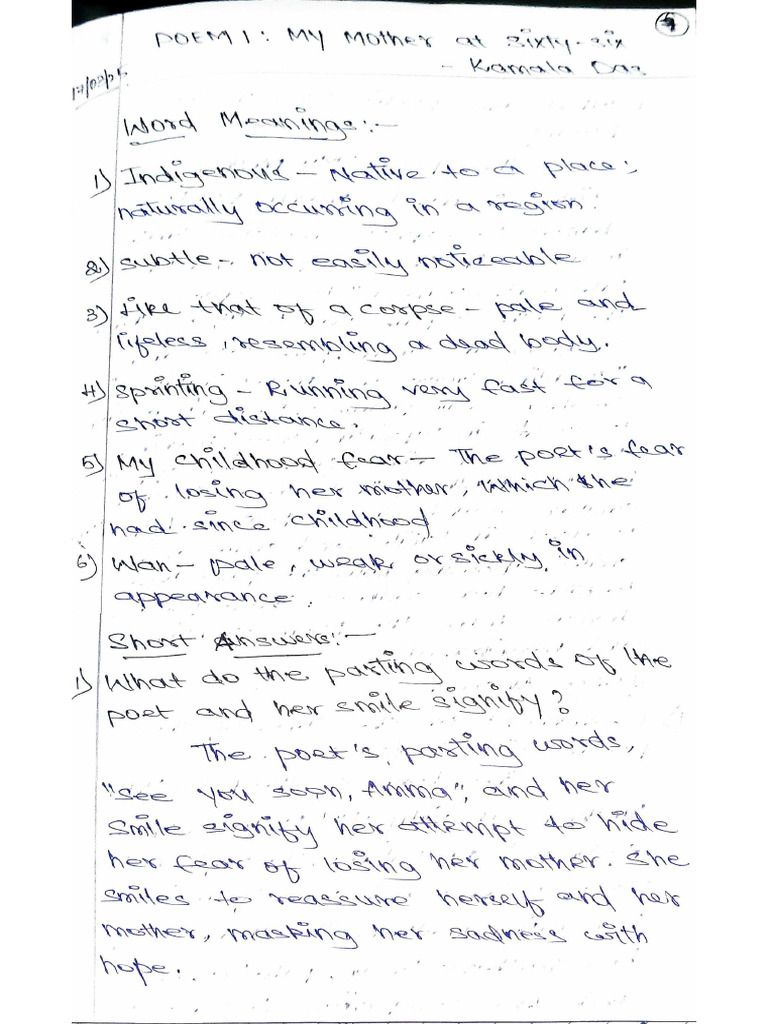 5
POEM 1: My Mother at Sixty-six
- Kamala Das
17/03/25
Word Meanings:-
1) Indigenous - Native to a place;
naturally occurring in a region.
2) subtle - not easily noticeable
3) like that of a corpse - pale and
lifeless, resembling a dead body.
4) sprinting - Running very fast for a
short distance.
5) My childhood fear - The poet's fear
of losing her mother, which she
had since childhood
6) Wan - pale, weak or sickly in
appearance.
Short Answers:-
1) What do the parting words of the
poet and her smile signify?
The poet's parting words,
"See you soon, Amma", and her
smile signify her attempt to hide
her fear of losing her mother. She
smiles to reassure herself and her
mother, masking her sadness with
hope.